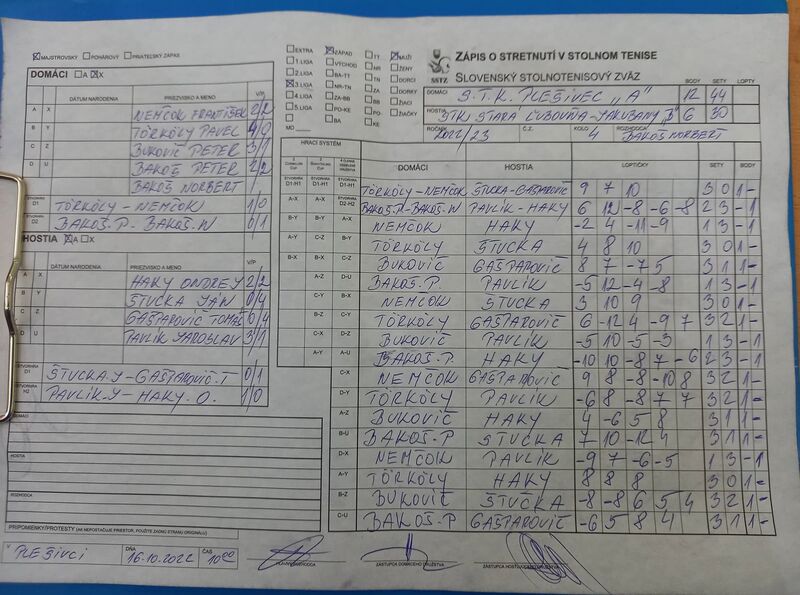 MAJSTROVSKÝ POHÁROVÝ PRIATEĽSKÝ ZÁPAS
DOMÁCI A X
DÁTUM NARODENIA PRIEZVISKO A MENO V/P
A X NEMČOK FRANTIŠEK 2/2
B Y TÖRKÖLY PAVEL 4/0
C Z BUKOVIČ PETER 3/1
D U BAKOŠ PETER 2/2
BAKOŠ NORBERT
ŠTVORHRA D1 TÖRKÖLY - NEMČOK 1/0
ŠTVORHRA D2 BAKOŠ.P - BAKOŠ.N 0/1
HOSTIA A X
DÁTUM NARODENIA PRIEZVISKO A MENO V/P
A X HAKY ONDREJ 2/2
B Y ŠTUCKA JÁN 0/4
C Z GAŠPAROVIČ TOMÁŠ 0/4
D U PAVLÍK JAROSLAV 3/1
ŠTVORHRA D1 ŠTUCKA.J - GAŠPAROVIČ.T 0/1
ŠTVORHRA H2 PAVLÍK.J - HAKY.O. 1/0
DOMÁCI
HOSTIA
ROZHODCA
PRIPOMIENKY/PROTESTY (AK NEPOSTAČUJE PRIESTOR, POUŽITE ZADNÚ STRANU ORIGINÁLU)
V PLEŠIVCI DŇA 16.10.2022 ČAS 10:00
HLAVNÝ ROZHODCA ZÁSTUPCA DOMÁCEHO DRUŽSTVA ZÁSTUPCA HOSŤUJÚCEHO DRUŽSTVA
EXTRA ZÁPAD TT MUŽI
1.LIGA VÝCHOD NR ŽENY
2.LIGA BA-TT TN DORCI
3.LIGA NR-TN ZA DORKY
4.LIGA ZA-BB BB ŽIACI
5.LIGA PO-KE PO ŽIAČKY
BA KE
MO
SSTZ
ZÁPIS O STRETNUTÍ V STOLNOM TENISE
SLOVENSKÝ STOLNOTENISOVÝ ZVÄZ
BODY SETY LOPTY
DOMÁCI S.T.K. PLEŠIVEC "A" 12 44
HOSTIA STK STARÁ ĽUBOVŇA-JAKUBANY "B" 6 30
ROČNÍK 2022/23 Č.Z. KOLO 4 ROZHODCA BAKOŠ NORBERT
HRACÍ SYSTÉM DOMÁCI HOSTIA LOPTIČKY SETY BODY
D1-H1 D1-H1 D1-H1 TÖRKÖLY - NEMČOK ŠTUCKA - GAŠPAROVIČ 9 7 10 3 0 1 -
A-X A-X D2-H2 BAKOŠ.P - BAKOŠ.N PAVLÍK - HAKY 6 12 -8 -6 -8 2 3 - 1
B-Y B-Y A-X NEMČOK HAKY -2 4 -11 -9 1 3 - 1
A-Y C-Z B-Y TÖRKÖLY ŠTUCKA 4 8 10 3 0 1 -
B-X B-X C-Z BUKOVIČ GAŠPAROVIČ 8 7 -7 5 3 1 1 -
A-Z D-U BAKOŠ.P. PAVLÍK -5 12 -4 -8 1 3 - 1
C-Y B-X NEMČOK ŠTUCKA 3 10 9 3 0 1 -
B-Z C-Y TÖRKÖLY GAŠPAROVIČ 6 -12 4 -9 7 3 2 1 -
C-X D-Z BUKOVIČ PAVLÍK -5 10 -5 -3 1 3 - 1
A-Y A-U BAKOŠ.P HAKY -10 10 -8 7 -6 2 3 - 1
C-X NEMČOK GAŠPAROVIČ 9 8 -8 -10 8 3 2 1 -
D-Y TÖRKÖLY PAVLÍK -6 8 -8 7 7 3 2 1 -
A-Z BUKOVIČ HAKY 4 -6 5 8 3 1 1 -
B-U BAKOŠ-P ŠTUCKA 7 10 -12 4 3 1 1 -
D-X NEMČOK PAVLÍK -9 7 -6 -5 1 3 - 1
A-Y TÖRKÖLY HAKY 8 8 8 3 0 1 -
B-Z BUKOVIČ ŠTUČKA -8 -8 6 5 4 3 2 1 -
C-U BAKOŠ-P GAŠPAROVIČ -6 5 8 4 3 1 1 -